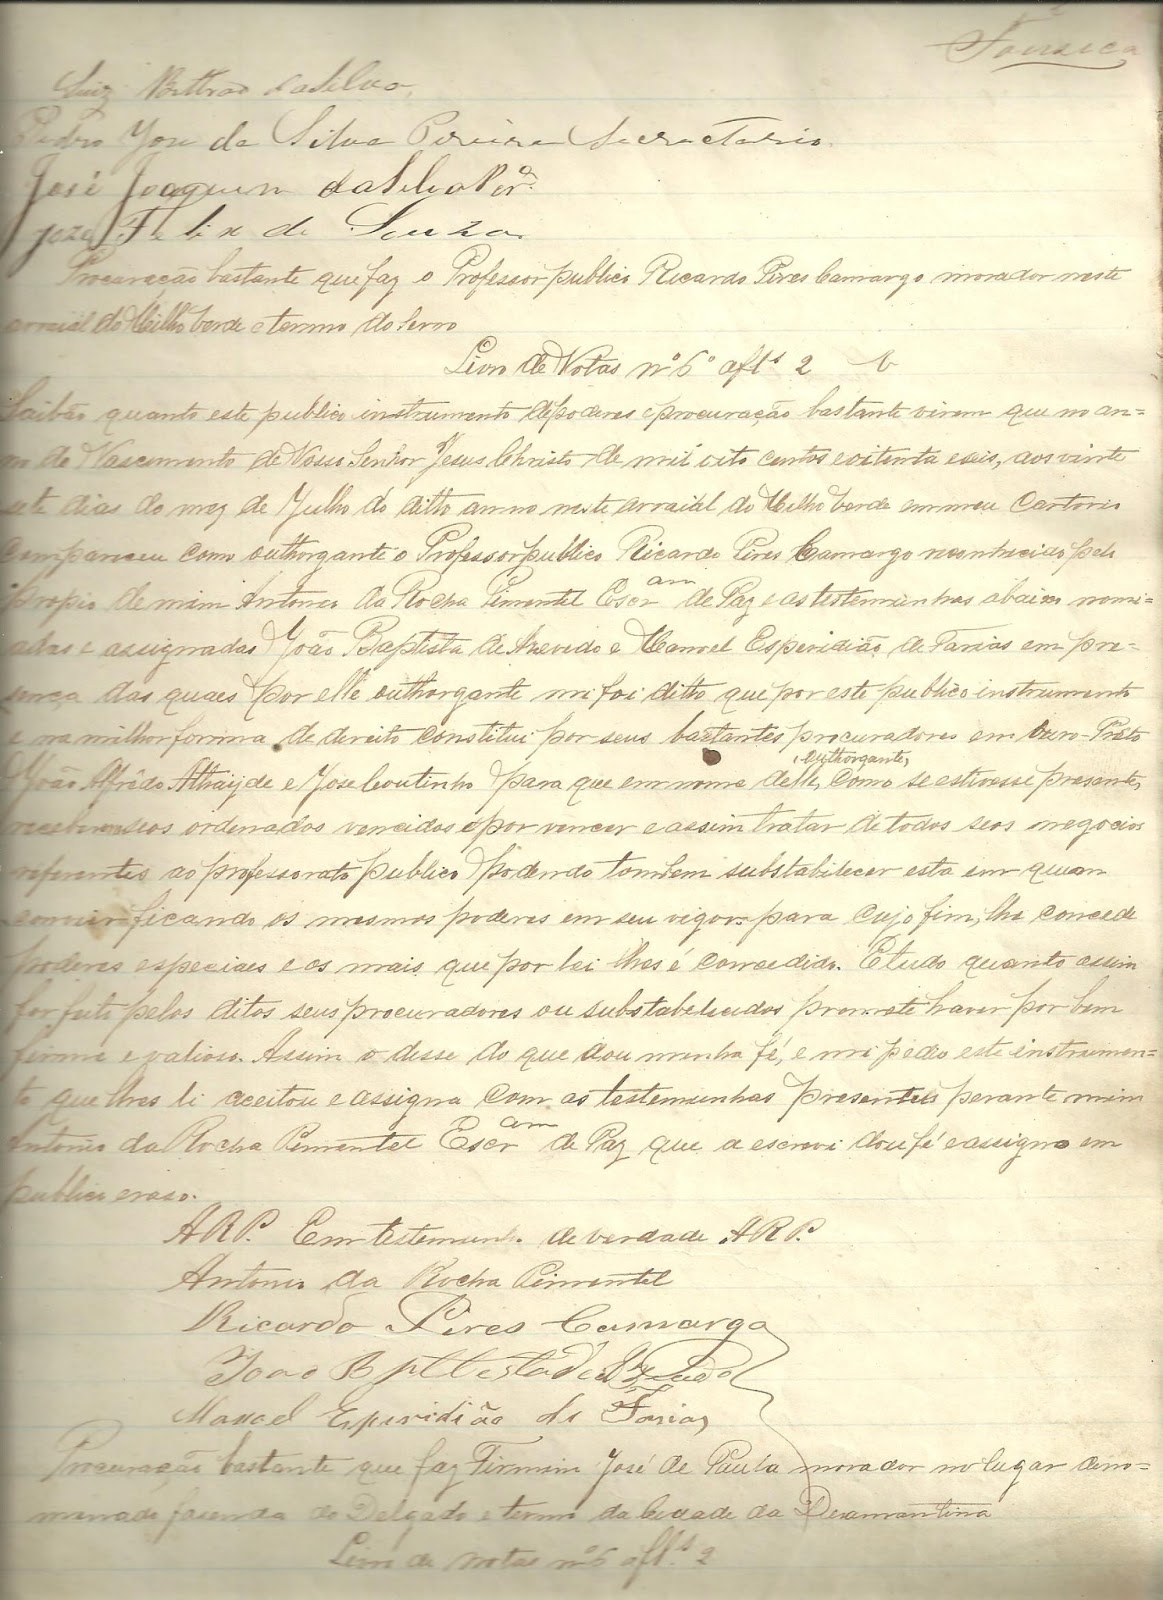 Fonseca
Luiz Beltrão da Silva,
Pedro Jose da Silva Pereira Secrectario
José Joaquim da Silva Per.ª
joze Felix de Souza
Procuração bastante que faz o Professor publico Ricardo Pires Camargo morador neste
arraial do Milho Verde e termo do Serro
Livro de Notas nº 6º a fls 2
Saibão quanto este publico instrumento de poderes e procuração bastante virem que no an=
no do Nascimento de Nosso Senhor Jesus Christo de mil oito centos e oitenta e seis, aos vinte
sete dias do mez de Julho do ditto anno neste arraial do Milho Verde em meu Cartorio
compareceu como outhorgante o Professor publico Ricardo Pires Camargo reconhecido pelo
propio de mim Antonio da Rocha Pimentel Escr am de Paz e as testemunhas abaixo nomi=
adas e assignadas João Baptista de Azevedo e Manoel Esperidião de Farias em pre=
sença das quaes por elle outhorgante mi foi ditto que por este publico instrumento
e na milhor forma de direito constitui por seus bastantes procuradores em Ouro-Preto
João Alfrêdo Athaijde e Jose Coutinho para que em nome delle, outhorgante, como se estivesse presente,
receberem seos ordenados vencidos e por vencer e assim tratar de todos seos negocios
referentes ao professorato publico podendo tambem substabelecer esta em quem
convier ficando os mesmos poderes em seu vigor para cujo fim, lhe concede
poderes especiaes e os mais que por lei lhes é concedido. E tudo quanto assim
for feito pelos ditos seus procuradores ou substabelecidos promete haver por bem
firme e valioso. Assim o disse do que dou minha fé, e mi pedio este instrumen=
to que lhes li aceitou e assigna com as testemunhas presentes perante mim
Antonio da Rocha Pimentel Escr am de Paz que a escrevi dou fé e assigno em
publico e raso.
ARP. Em testemunho de verdade ARP.
Antonio da Rocha Pimentel
Ricardo Pires Camargo
Joao Bapttista de Azevedo
Manoel Esperidião de Farias
Procuração bastante que faz Firmino José de Paula morador no lugar deno=
minado fazenda do Delgado e termo da Cidade da Deamantina
Livro de notas nº 6 a fls 2